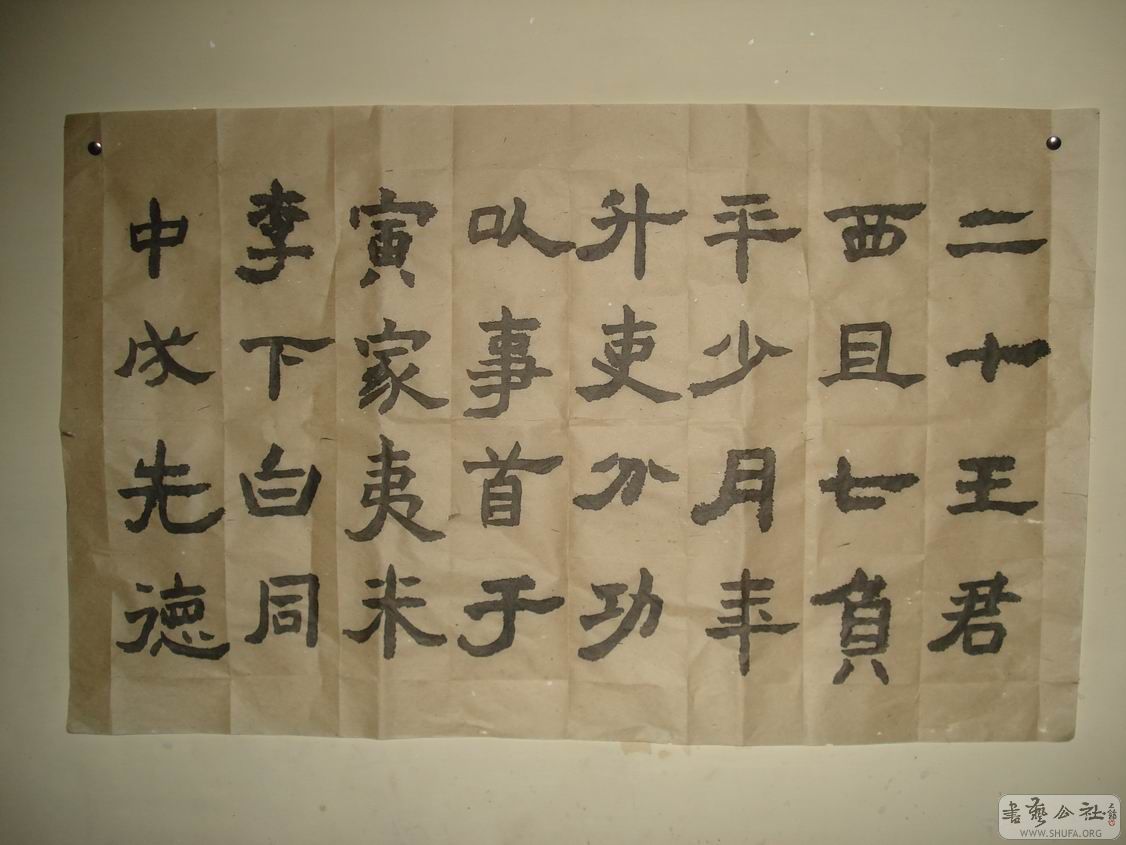 二十王君
西且七負
平少月年
升吏分功
以事首于
寅家夷米
李下白同
中成先德
書藝公社
WWW.SHUFA.ORG